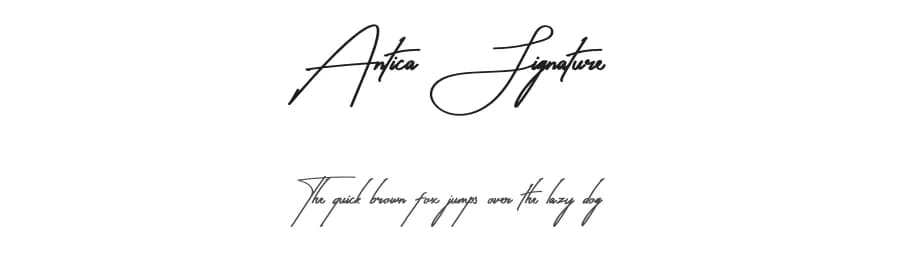 Antica Signature
The quick brown fox jumps over the lazy dog